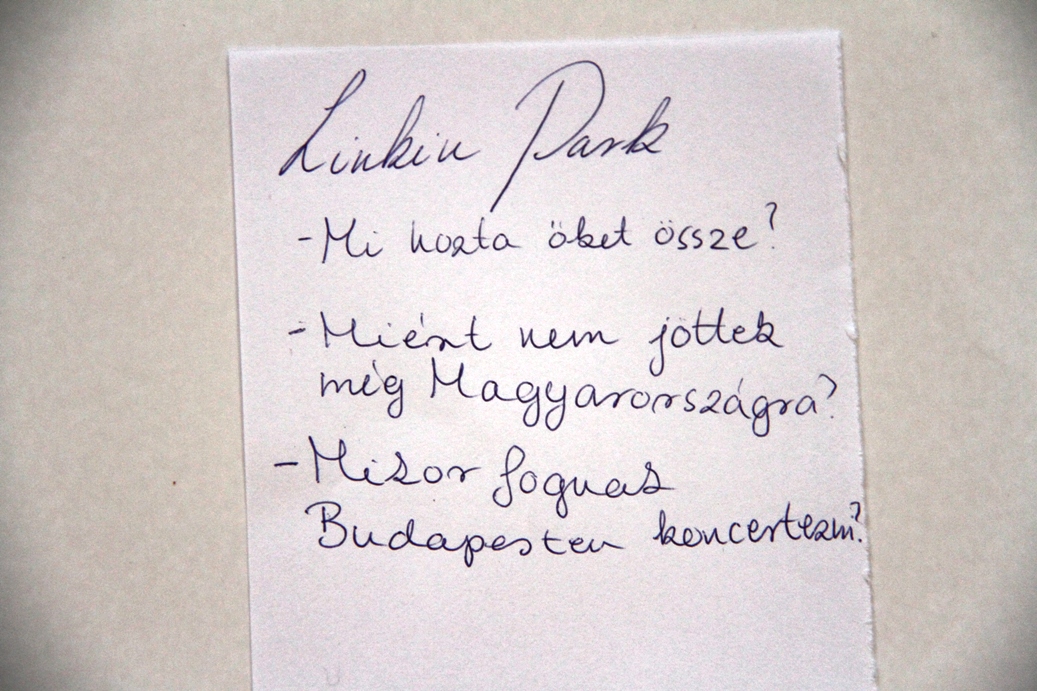 Linkin Park
- Mi hozta őket össze?
- Miért nem jöttek
még Magyarországra?
- Mikor fognak
Budapesten koncertezni?